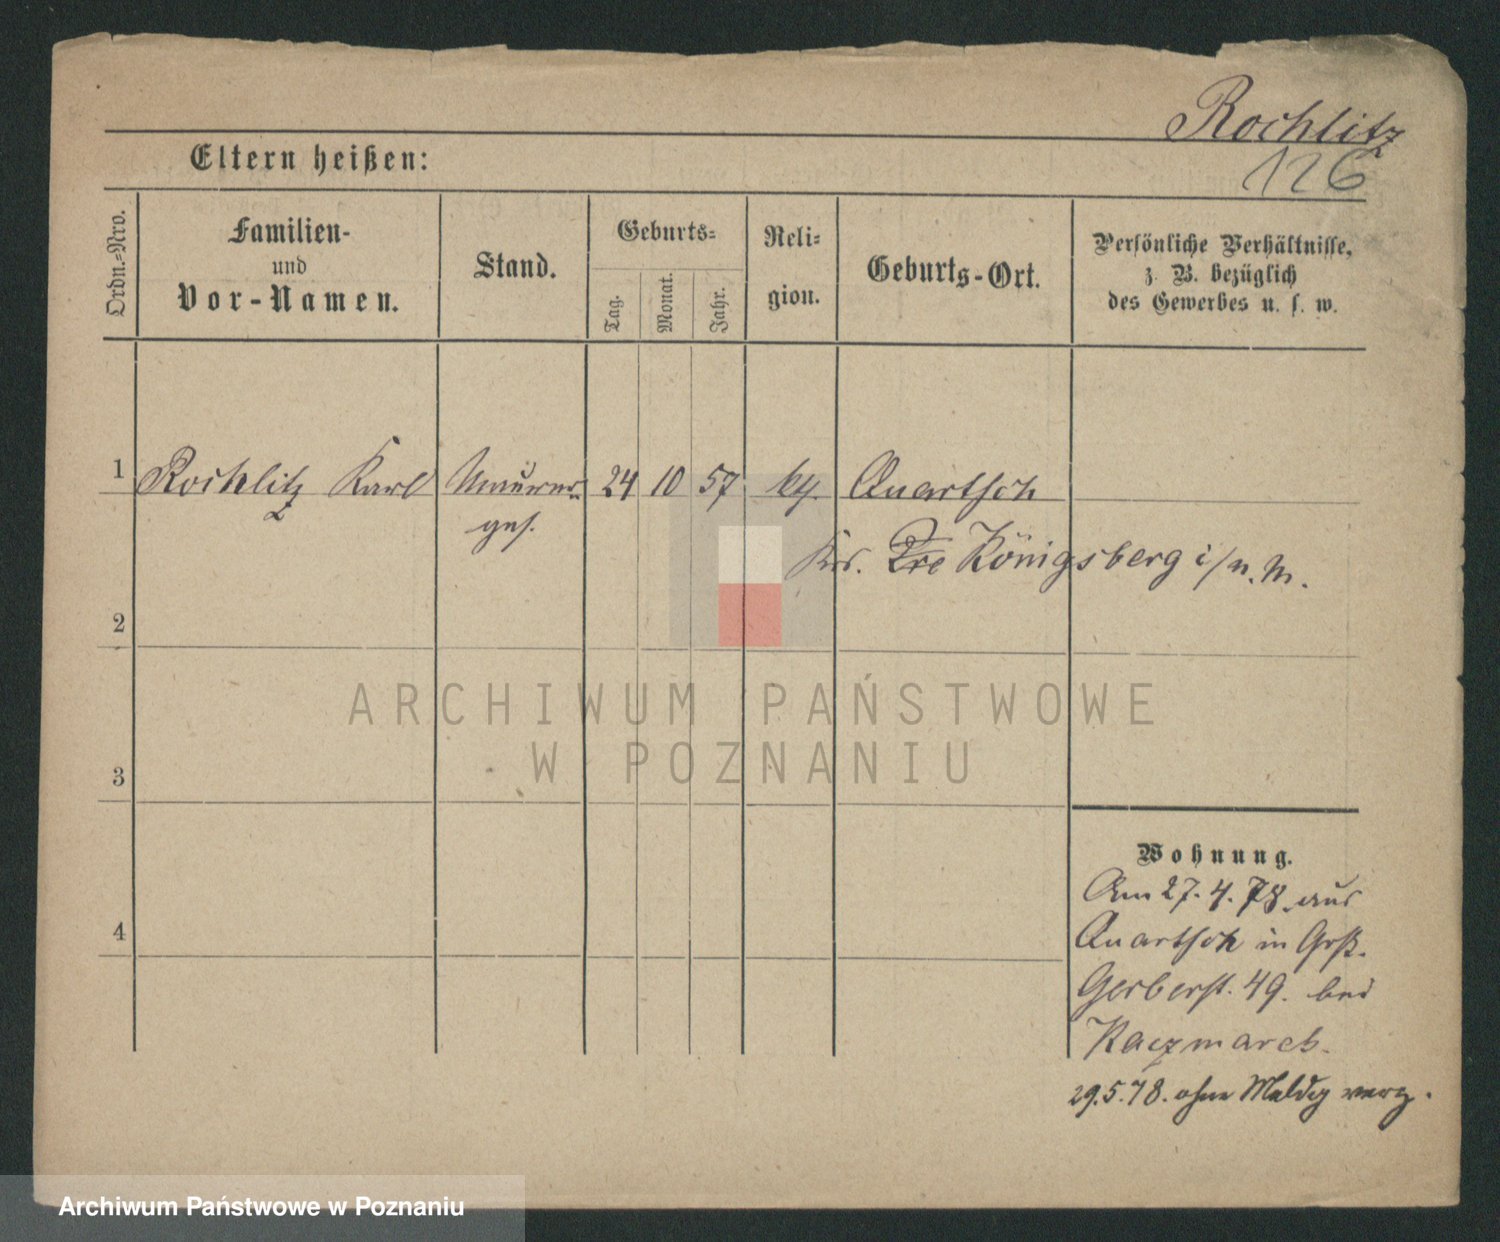 Rochlitz
126
Eltern heißen:
Ordn.-Nro.
Familien-
und
Vor-Namen.
Stand.
Geburts-
Tag.
Monat.
Jahr.
Reli-
gion.
Geburts-Ort.
Persönliche Verhältnisse,
z. B. bezüglich
des Gewerbes u. s. w.
1 Rochlitz Karl Maurer 24 10 57 Quartsch
ges.
Krs. Königsberg i/n. M.
2
ARCHIWUM PAŃSTWOWE
W POZNANIU
3
Wohnung.
Am 27. 4. 78 aus
4
Quartsch in Grß.
Gerberst. 49. bei
Kaczmarek.
29. 5. 78. ohne Meldg verz.
Archiwum Państwowe w Poznaniu